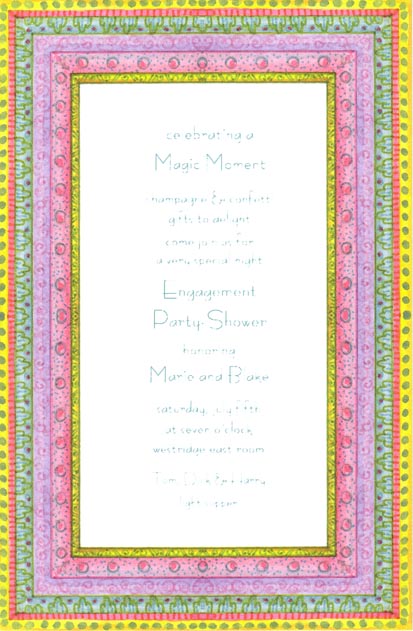 celebrating a
Magic Moment
champagne & confetti
gifts to delight
come join us for
a very special night
Engagement
Party Shower
honoring
Marie and Blake
saturday, july fifth
at seven o'clock
westridge east room
Tom, Dick & Harry
light supper